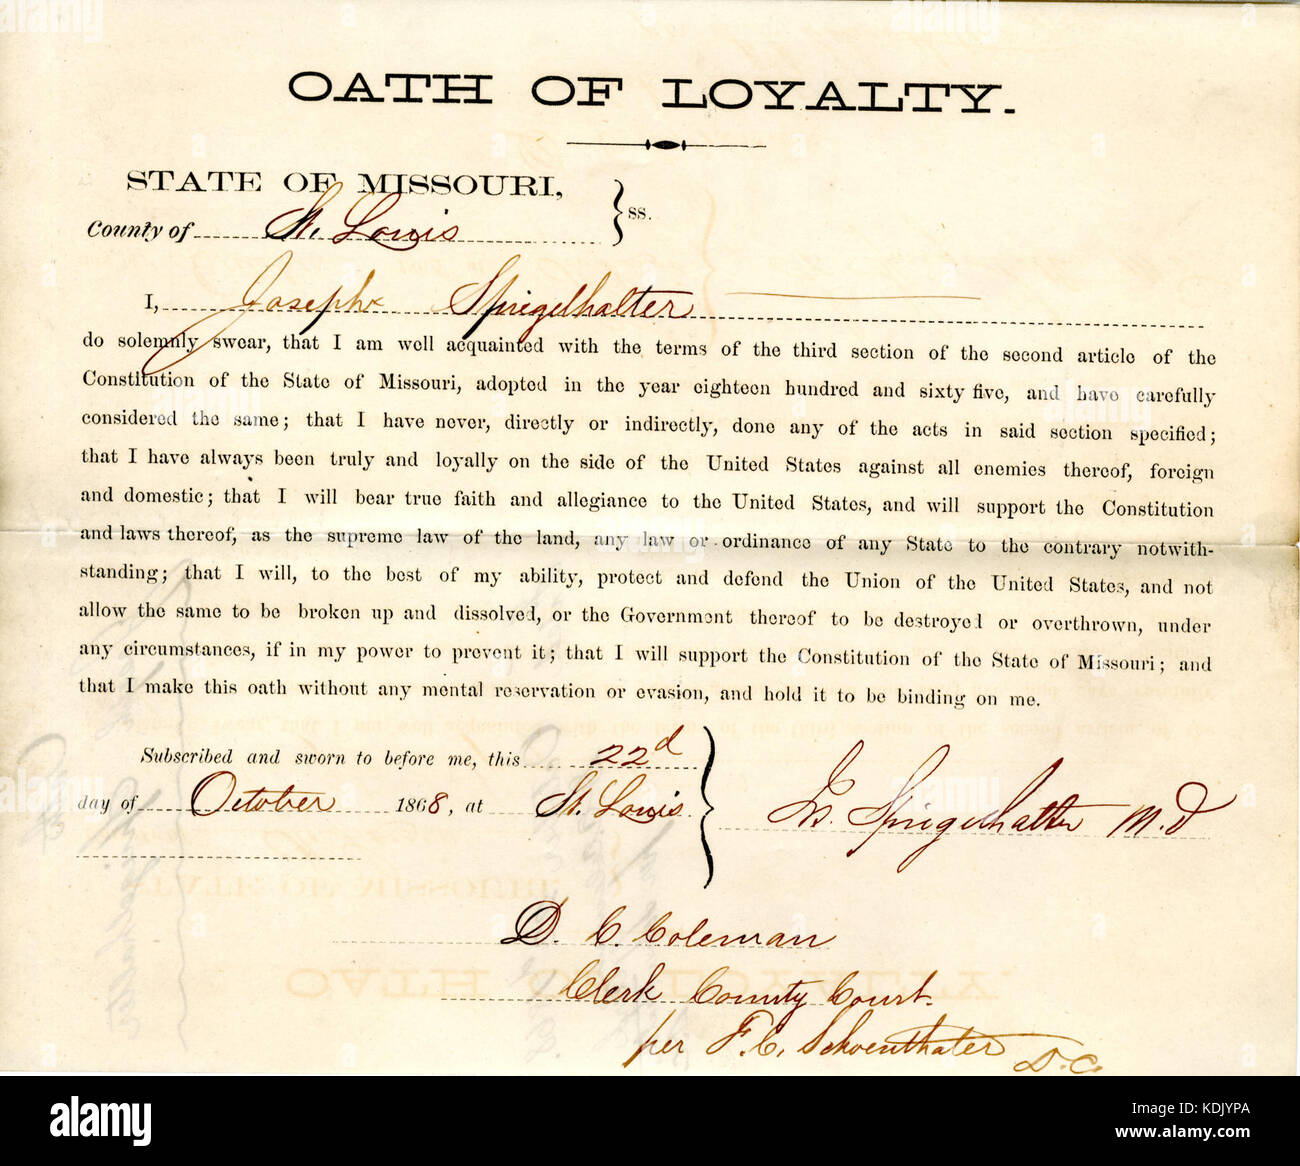 OATH OF LOYALTY.
STATE OF MISSOURI,
County of St. Louis } ss.
I, Joseph Spiegelhalter
do solemnly swear, that I am well acquainted with the terms of the third section of the second article of the
Constitution of the State of Missouri, adopted in the year eighteen hundred and sixty five, and have carefully
considered the same; that I have never, directly or indirectly, done any of the acts in said section specified;
that I have always been truly and loyally on the side of the United States against all enemies thereof, foreign
and domestic; that I will bear true faith and allegiance to the United States, and will support the Constitution
and laws thereof, as the supreme law of the land, any law or ordinance of any State to the contrary notwith-
standing; that I will, to the best of my ability, protect and defend the Union of the United States, and not
allow the same to be broken up and dissolved, or the Government thereof to be destroyed or overthrown, under
any circumstances, if in my power to prevent it; that I will support the Constitution of the State of Missouri; and
that I make this oath without any mental reservation or evasion, and hold it to be binding on me.
Subscribed and sworn to before me, this 22d
day of October 1868, at St. Louis
Spiegelhalter M.D
D. C. Coleman
Clerk County Court.
per F. C. Schoenthaler D.C.
alamy
Image ID: KDJYPA
www.alamy.com